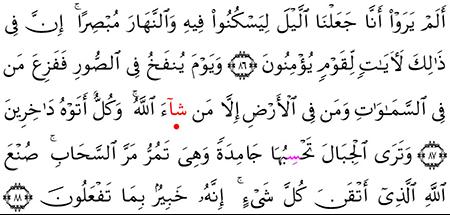 أَلَمْ يَرَوْا۟ أَنَّا جَعَلْنَا ٱلَّيْلَ لِيَسْكُنُوا۟ فِيهِ وَٱلنَّهَارَ مُبْصِرًا ۚ إِنَّ فِى
ذَٰلِكَ لَـَٔايَـٰتٍ لِّقَوْمٍ يُؤْمِنُونَ ۝٨٦ وَيَوْمَ يُنفَخُ فِى ٱلصُّورِ فَفَزِعَ مَن
فِى ٱلسَّمَـٰوَٰتِ وَمَن فِى ٱلْأَرْضِ إِلَّا مَن شَآءَ ٱللَّهُ ۚ وَكُلٌّ أَتَوْهُ دَٰخِرِينَ
۝٨٧ وَتَرَى ٱلْجِبَالَ تَحْسِبُهَا جَامِدَةً وَهِىَ تَمُرُّ مَرَّ ٱلسَّحَابِ ۚ صُنْعَ
ٱللَّهِ ٱلَّذِىٓ أَتْقَنَ كُلَّ شَىْءٍ ۚ إِنَّهُۥ خَبِيرٌۢ بِمَا تَفْعَلُونَ ۝٨٨